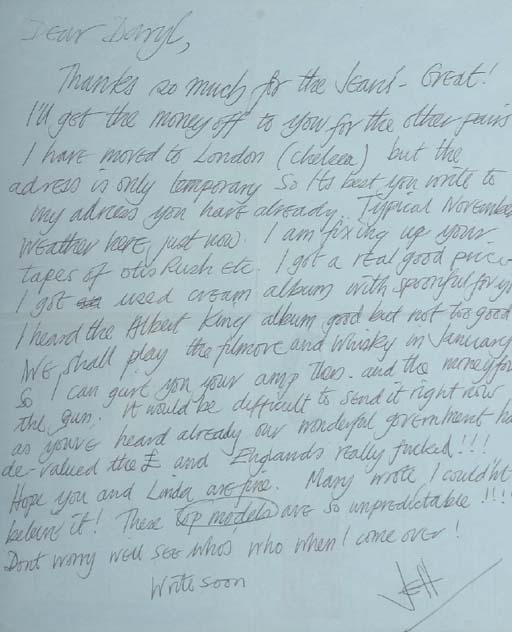 Dear Darryl,
Thanks so much for the Jeans - Great!
I'll get the money off to you for the other pairs
I have moved to London (Chelsea) but the
adress is only temporary So Its best you write to
my adress you have already. Typical November
Weather here, just now. I am fixing up your
tapes of Otis Rush etc. I got a real good price
I got used cream album with spoonful for yo
I heard the Albert King album good but not too good
We shall play the filmore and Whisky in January
So I can give you your amp then - and the money for
the gun. It would be difficult to send it right now
as youve heard already our wonderful government ha
de-valued the £ and Englands really fucked!!!
Hope you and Linda are fine. Mary wrote I could'nt
believe it! These top models are so unpredictable!!!!
Dont worry we'll see whos who when I come over!
Write soon
Jeff